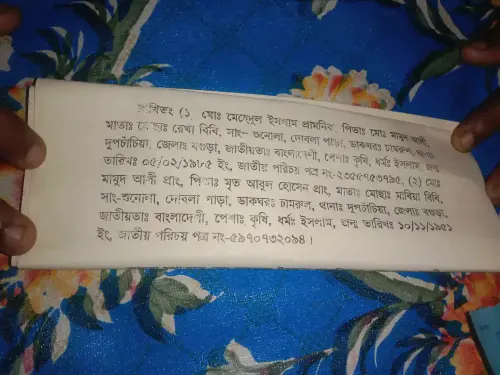 (১, মোঃ মেহেদুল ইসলাম প্রামনিক, পিতাঃ মোঃ মামুদ আলী,
মাতাঃ মোছাঃ রেখা বিবি, সাং- গুনোলা, দোবলা পাড়া, ডাকঘরঃ চামরুল, থানাঃ
দুপচাঁচিয়া, জেলাঃ বগুড়া, জাতীয়তাঃ বাংলাদেশী, পেশাঃ কৃষি, ধর্মঃ ইসলাম, জন্ম
তারিখঃ ০৫/০২/১৯৮৫ ইং, জাতীয় পরিচয় পত্র নং-২৩৫৫৭৫৩৭৯৫, (২) মোঃ
মামুদ আলী প্রাং, পিতাঃ মৃত আবুল হোসেন প্রাং, মাতাঃ মোছাঃ মাবিয়া বিবি,
সাং-গুনোলা, দোবলা পাড়া, ডাকঘরঃ চামরুল, থানাঃ দুপচাঁচিয়া, জেলাঃ বগুড়া,
জাতীয়তাঃ বাংলাদেশী, পেশাঃ কৃষি, ধর্মঃ ইসলাম, জন্ম তারিখঃ ১০/১১/১৯৫১
ইং, জাতীয় পরিচয় পত্র নং-৫৯৭০৭৩২০৯৪।